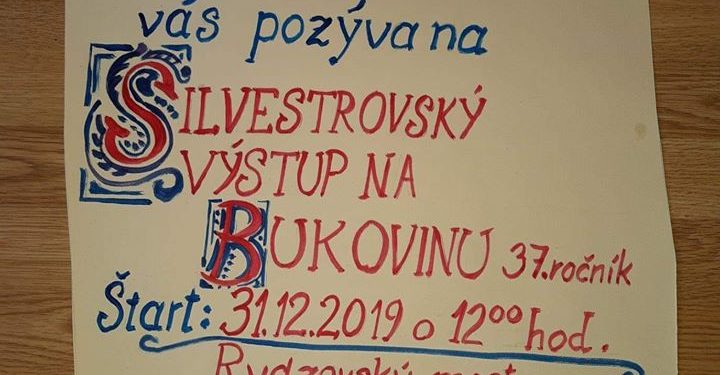 vás pozýva na
SILVESTROVSKÝ
VÝSTUP NA
BUKOVINU 37.ročník
Štart: 31.12.2019 o 12⁰⁰ hod.
Rudzovský most